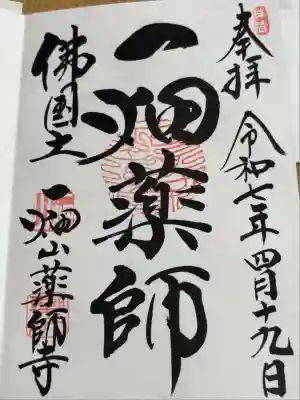 奉拝
令和七年四月十九日
一畑薬師
佛国土
一畑山薬師寺